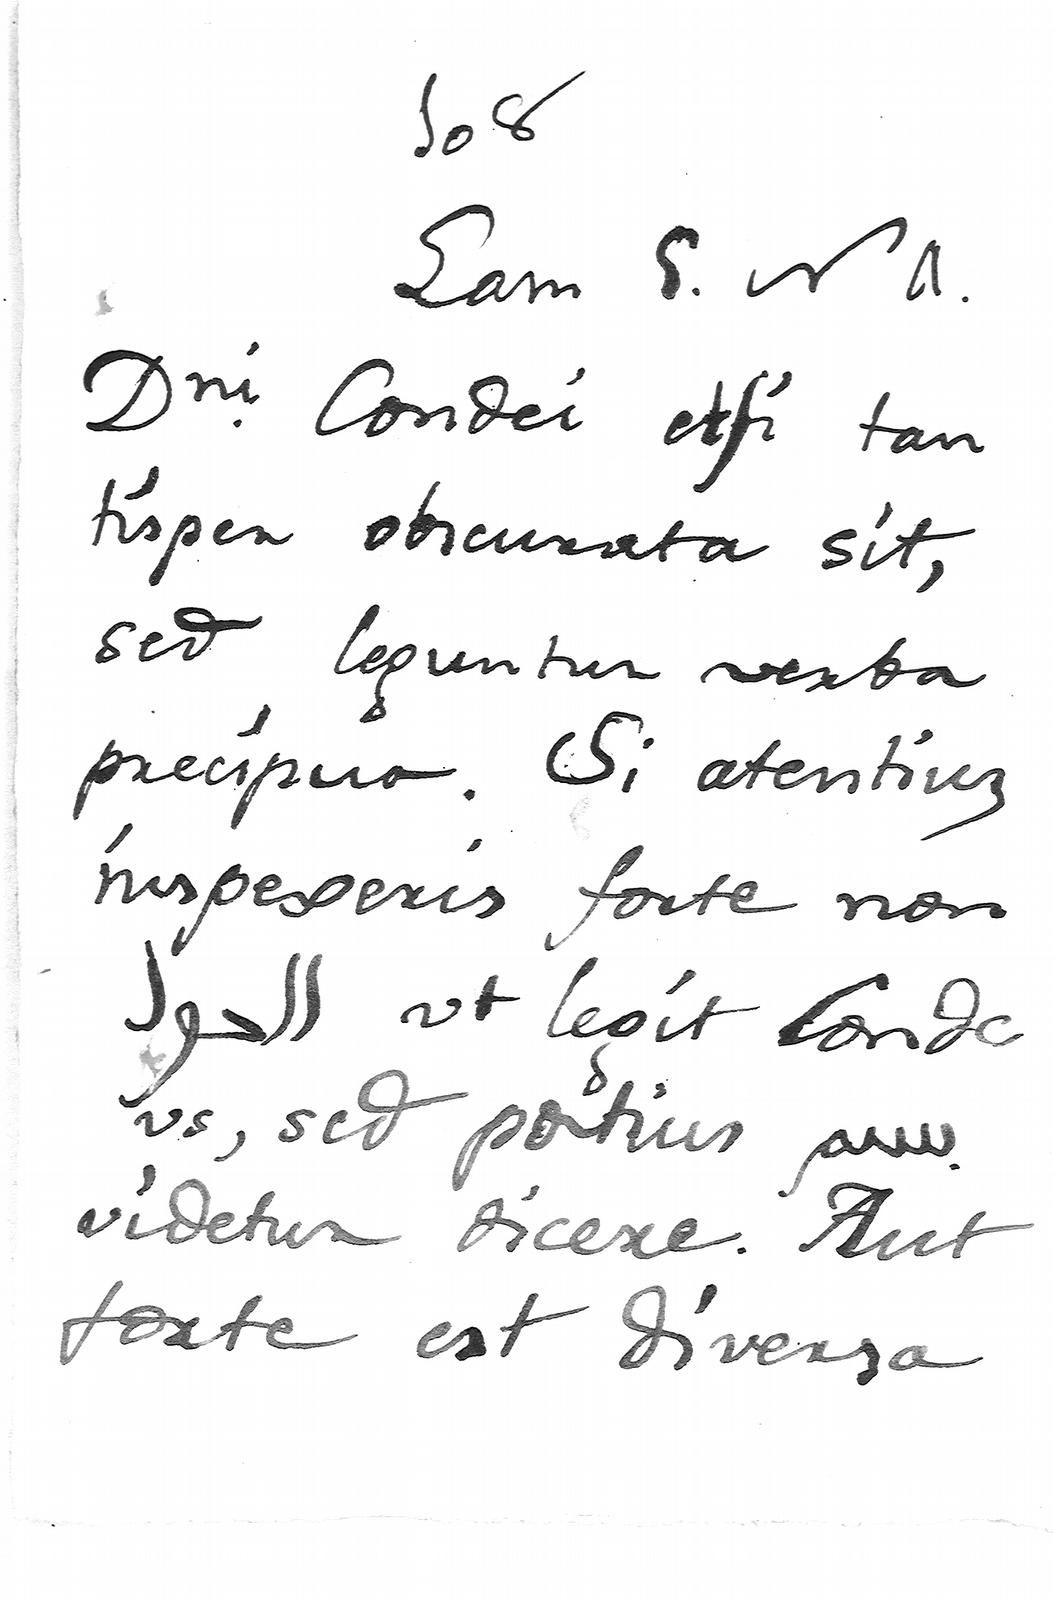 108
Lam 8. N A.
Dni. Condei etsi tan
tisper obscurata sit,
sed leguntur verba
precipua. Si atentius
inspexeris forte non
ut legit Conde
us, sed potius
videtur dicere. Aut
forte est diversa